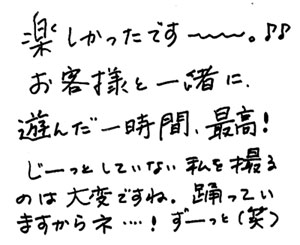 楽しかったです〜〜〜。♪♪
お客様と一緒に、
遊んだ一時間、最高!
じーっとしていない私を撮る
のは大変ですね。踊ってい
ますからネ…!ずーっと(笑)